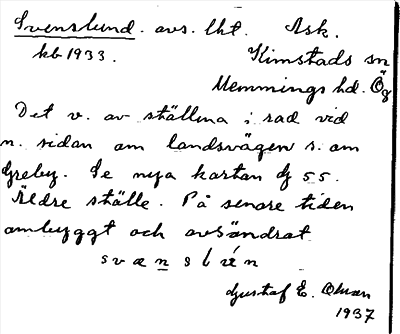 Svenslund. avs. lht. Ask.
kb 1933. Kimstads sn
Memmings hd. Ög
Det v. av ställena i rad vid
n. sidan om landsvägen s. om
Greby. Se nya kartan G 55.
Äldre ställe. På senare tiden
ombyggt och avsöndrat
svænslún
Gustaf E. Oman
1937